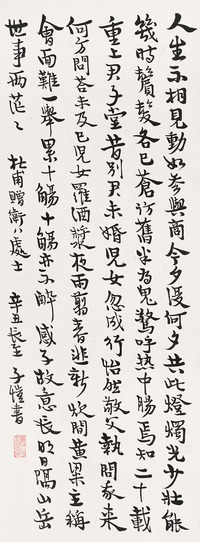 人生不相見動如參與商今夕復何夕共此燈燭光少壯能
幾時鬢髮各已蒼訪舊半為鬼驚呼熱中腸焉知二十載
重上君子堂昔別君未婚兒女忽成行怡然敬父執問我來
何方問答未及已兒女羅酒漿夜雨翦春韭新炊間黃粱主稱
會面難一舉累十觴十觴亦不醉感子故意長明日隔山岳
世事兩茫々 杜甫贈衛八處士 辛丑長至 子愷書